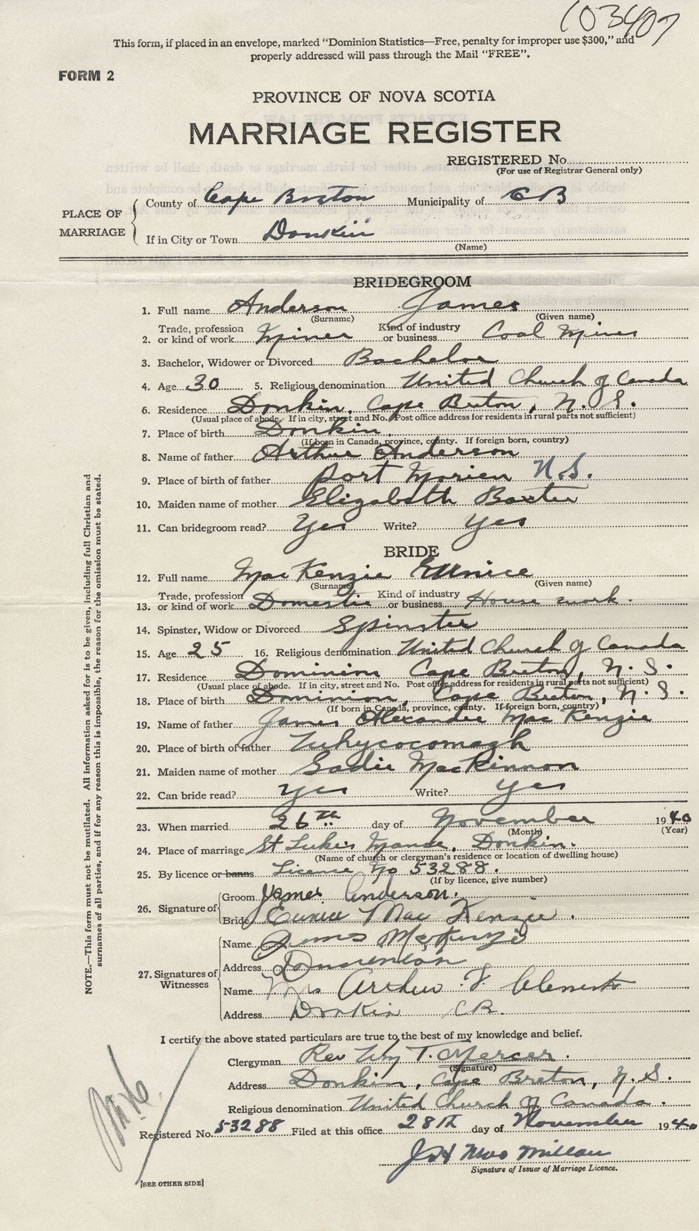 103407
This form, if placed in an envelope, marked "Dominion Statistics—Free, penalty for improper use $300," and
properly addressed will pass through the Mail "FREE".
FORM 2
PROVINCE OF NOVA SCOTIA
MARRIAGE REGISTER
REGISTERED No.
(For use of Registrar General only)
PLACE OF MARRIAGE
County of Cape Breton Municipality of C B
If in City or Town Donkin
(Name)
BRIDEGROOM
1. Full name Anderson James
(Surname) (Given name)
2. Trade, profession or kind of work Miner Kind of industry or business Coal Mines
3. Bachelor, Widower or Divorced Bachelor
4. Age 30 5. Religious denomination United Church of Canada
6. Residence Donkin, Cape Breton, N.S.
(Usual place of abode. If in city, street and No. Post office address for residents in rural parts not sufficient)
7. Place of birth Donkin.
(If born in Canada, province, county. If foreign born, country)
8. Name of father Arthur Anderson
9. Place of birth of father Port Morien N.S.
10. Maiden name of mother Elizabeth Baxter
11. Can bridegroom read? Yes Write? Yes
BRIDE
12. Full name MacKenzie Eunice
(Surname) (Given name)
13. Trade, profession or kind of work Domestic Kind of industry or business House work.
14. Spinster, Widow or Divorced Spinster
15. Age 25 16. Religious denomination United Church of Canada
17. Residence Dominion Cape Breton, N.S.
(Usual place of abode. If in city, street and No. Post office address for residents in rural parts not sufficient)
18. Place of birth Dominion, Cape Breton, N.S.
(If born in Canada, province, county. If foreign born, country)
19. Name of father James Alexander Mac Kenzie
20. Place of birth of father Whycocomagh
21. Maiden name of mother Sadie MacKinnon
22. Can bride read? yes Write? yes
23. When married 26th day of November 1940
(Month) (Year)
24. Place of marriage St Luke's Manse, Donkin.
(Name of church or clergyman's residence or location of dwelling house)
25. By licence or banns Licence No 53288.
(If by licence, give number)
26. Signature of
Groom James Anderson.
Bride Eunice MacKenzie.
27. Signatures of Witnesses
Name James McKenzie
Address Dominion
Name Mrs Arthur F Clements
Address Donkin CB.
I certify the above stated particulars are true to the best of my knowledge and belief.
Clergyman Rev Wm T. Mercer.
(Signature)
Address Donkin, Cape Breton, N.S.
Religious denomination United Church of Canada.
Registered No. 53288 Filed at this office 28th day of November 1940
J H MacMillan
Signature of Issuer of Marriage Licence.
[SEE OTHER SIDE]
NOTE.—This form must not be mutilated. All information asked for is to be given, including full Christian and
surnames of all parties, and if for any reason this is impossible, the reason for the omission must be stated.